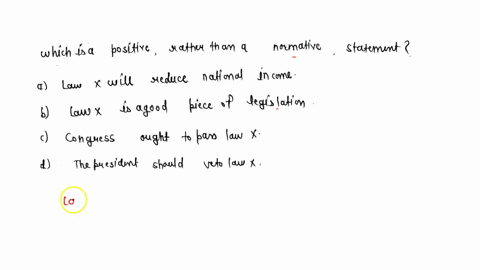 which is a positive, rather than a normative, statement?
a) Law x will reduce national income.
b) Law x is a good piece of legislation.
c) Congress ought to pass law x.
d) The president should veto law x.
Lo